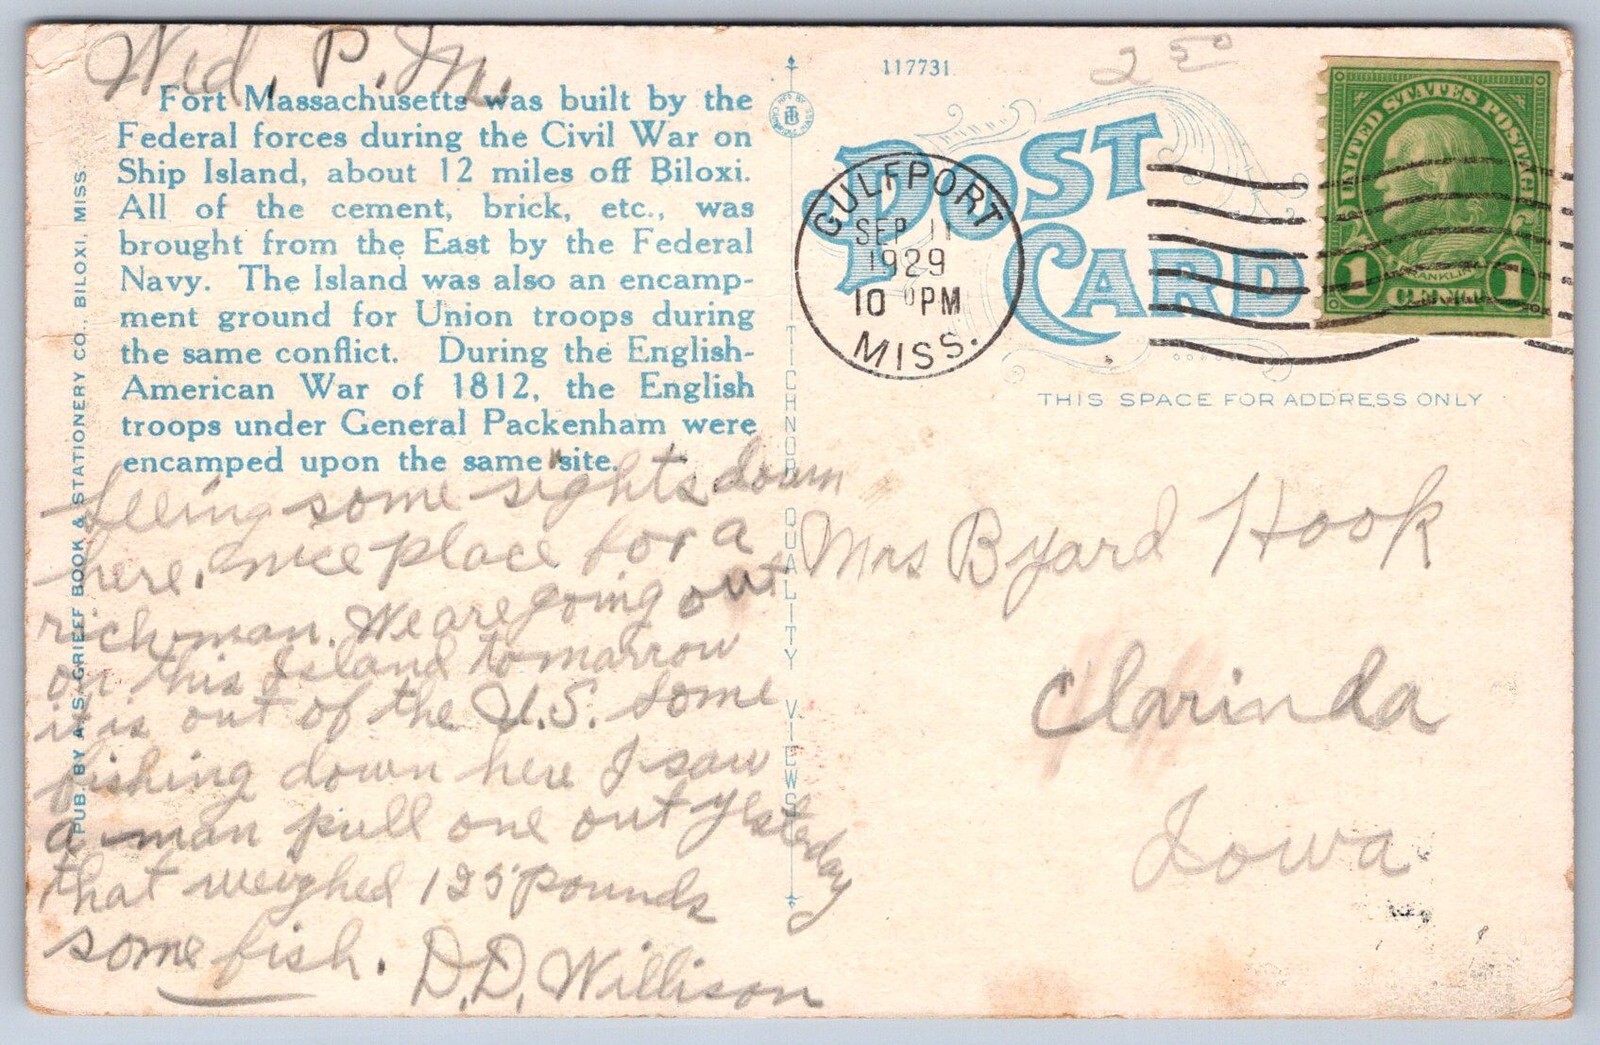 Wed. P.M.
Fort Massachusetts was built by the
Federal forces during the Civil War on
Ship Island, about 12 miles off Biloxi.
All of the cement, brick, etc., was
brought from the East by the Federal
Navy. The Island was also an encamp-
ment ground for Union troops during
the same conflict. During the English-
American War of 1812, the English
troops under General Packenham were
encamped upon the same site.
Seeing some sights down
here. nice place for a
rich man. We are going out
on this Island tomarrow
it is out of the U.S. Some
fishing down here I saw
a man pull one out yesterday
that weighed 125 pounds
some fish. D.D. Willison
PUB. BY A. S. GRIEFF BOOK & STATIONERY CO., BILOXI, MISS.
TICHNOR QUALITY VIEWS
117731
2 50
POST CARD
GULFPORT
SEP 11
1929
10 PM
MISS.
UNITED STATES POSTAGE
FRANKLIN
1 CENT 1
THIS SPACE FOR ADDRESS ONLY
Mrs Byard Hook
Clarinda
Iowa